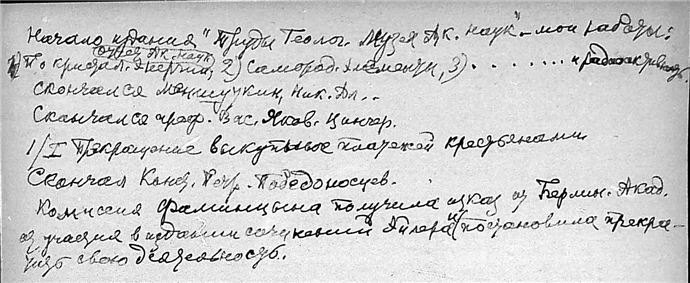 Начало издания "Труды Геолог. Музея Ак. наук" - мои работы:
отчет Ак. наук
1) По кристал. 2) Самород. элементы, 3) . . . . . . . и радиоактивность.
Скончался Меншуткин, Ник. Ал..
Скончался проф. Вас. Яков. Цингер.
1/I Прекращение выкупных платежей крестьянами.
Сконча Конст. Петр. Победоносцев.
Комиссия Фаминцына получила отказ от Берлин. Акад.
от участия в издании сочинений Эйлера и постановила прекра-
тить свою деятельность.